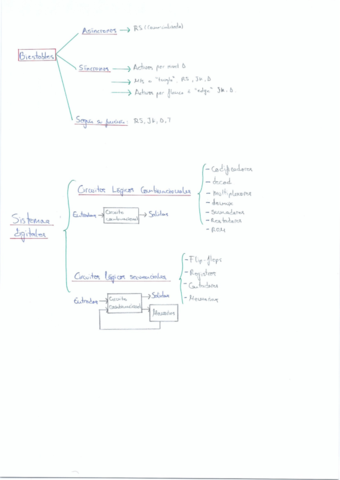 Biestables
Asíncronos → RS
Síncronos → Activos por nivel D
RS, JK, D
Activos por flanco = "edge" JK, D
Según su función: RS, JK, D, T
Sistemas digitales
Circuitos lógicos combinacionales
Entradas → Circuito combinacional → Salidas
- Codificadores
- decod
- Multiplexores
- demux
- Restadores
- ROM
Circuitos lógicos secuenciales
Entradas → Circuito Combinacional → Salidas
Memoria
- Flip-flops
- Registros
- Contadores
- Memorias